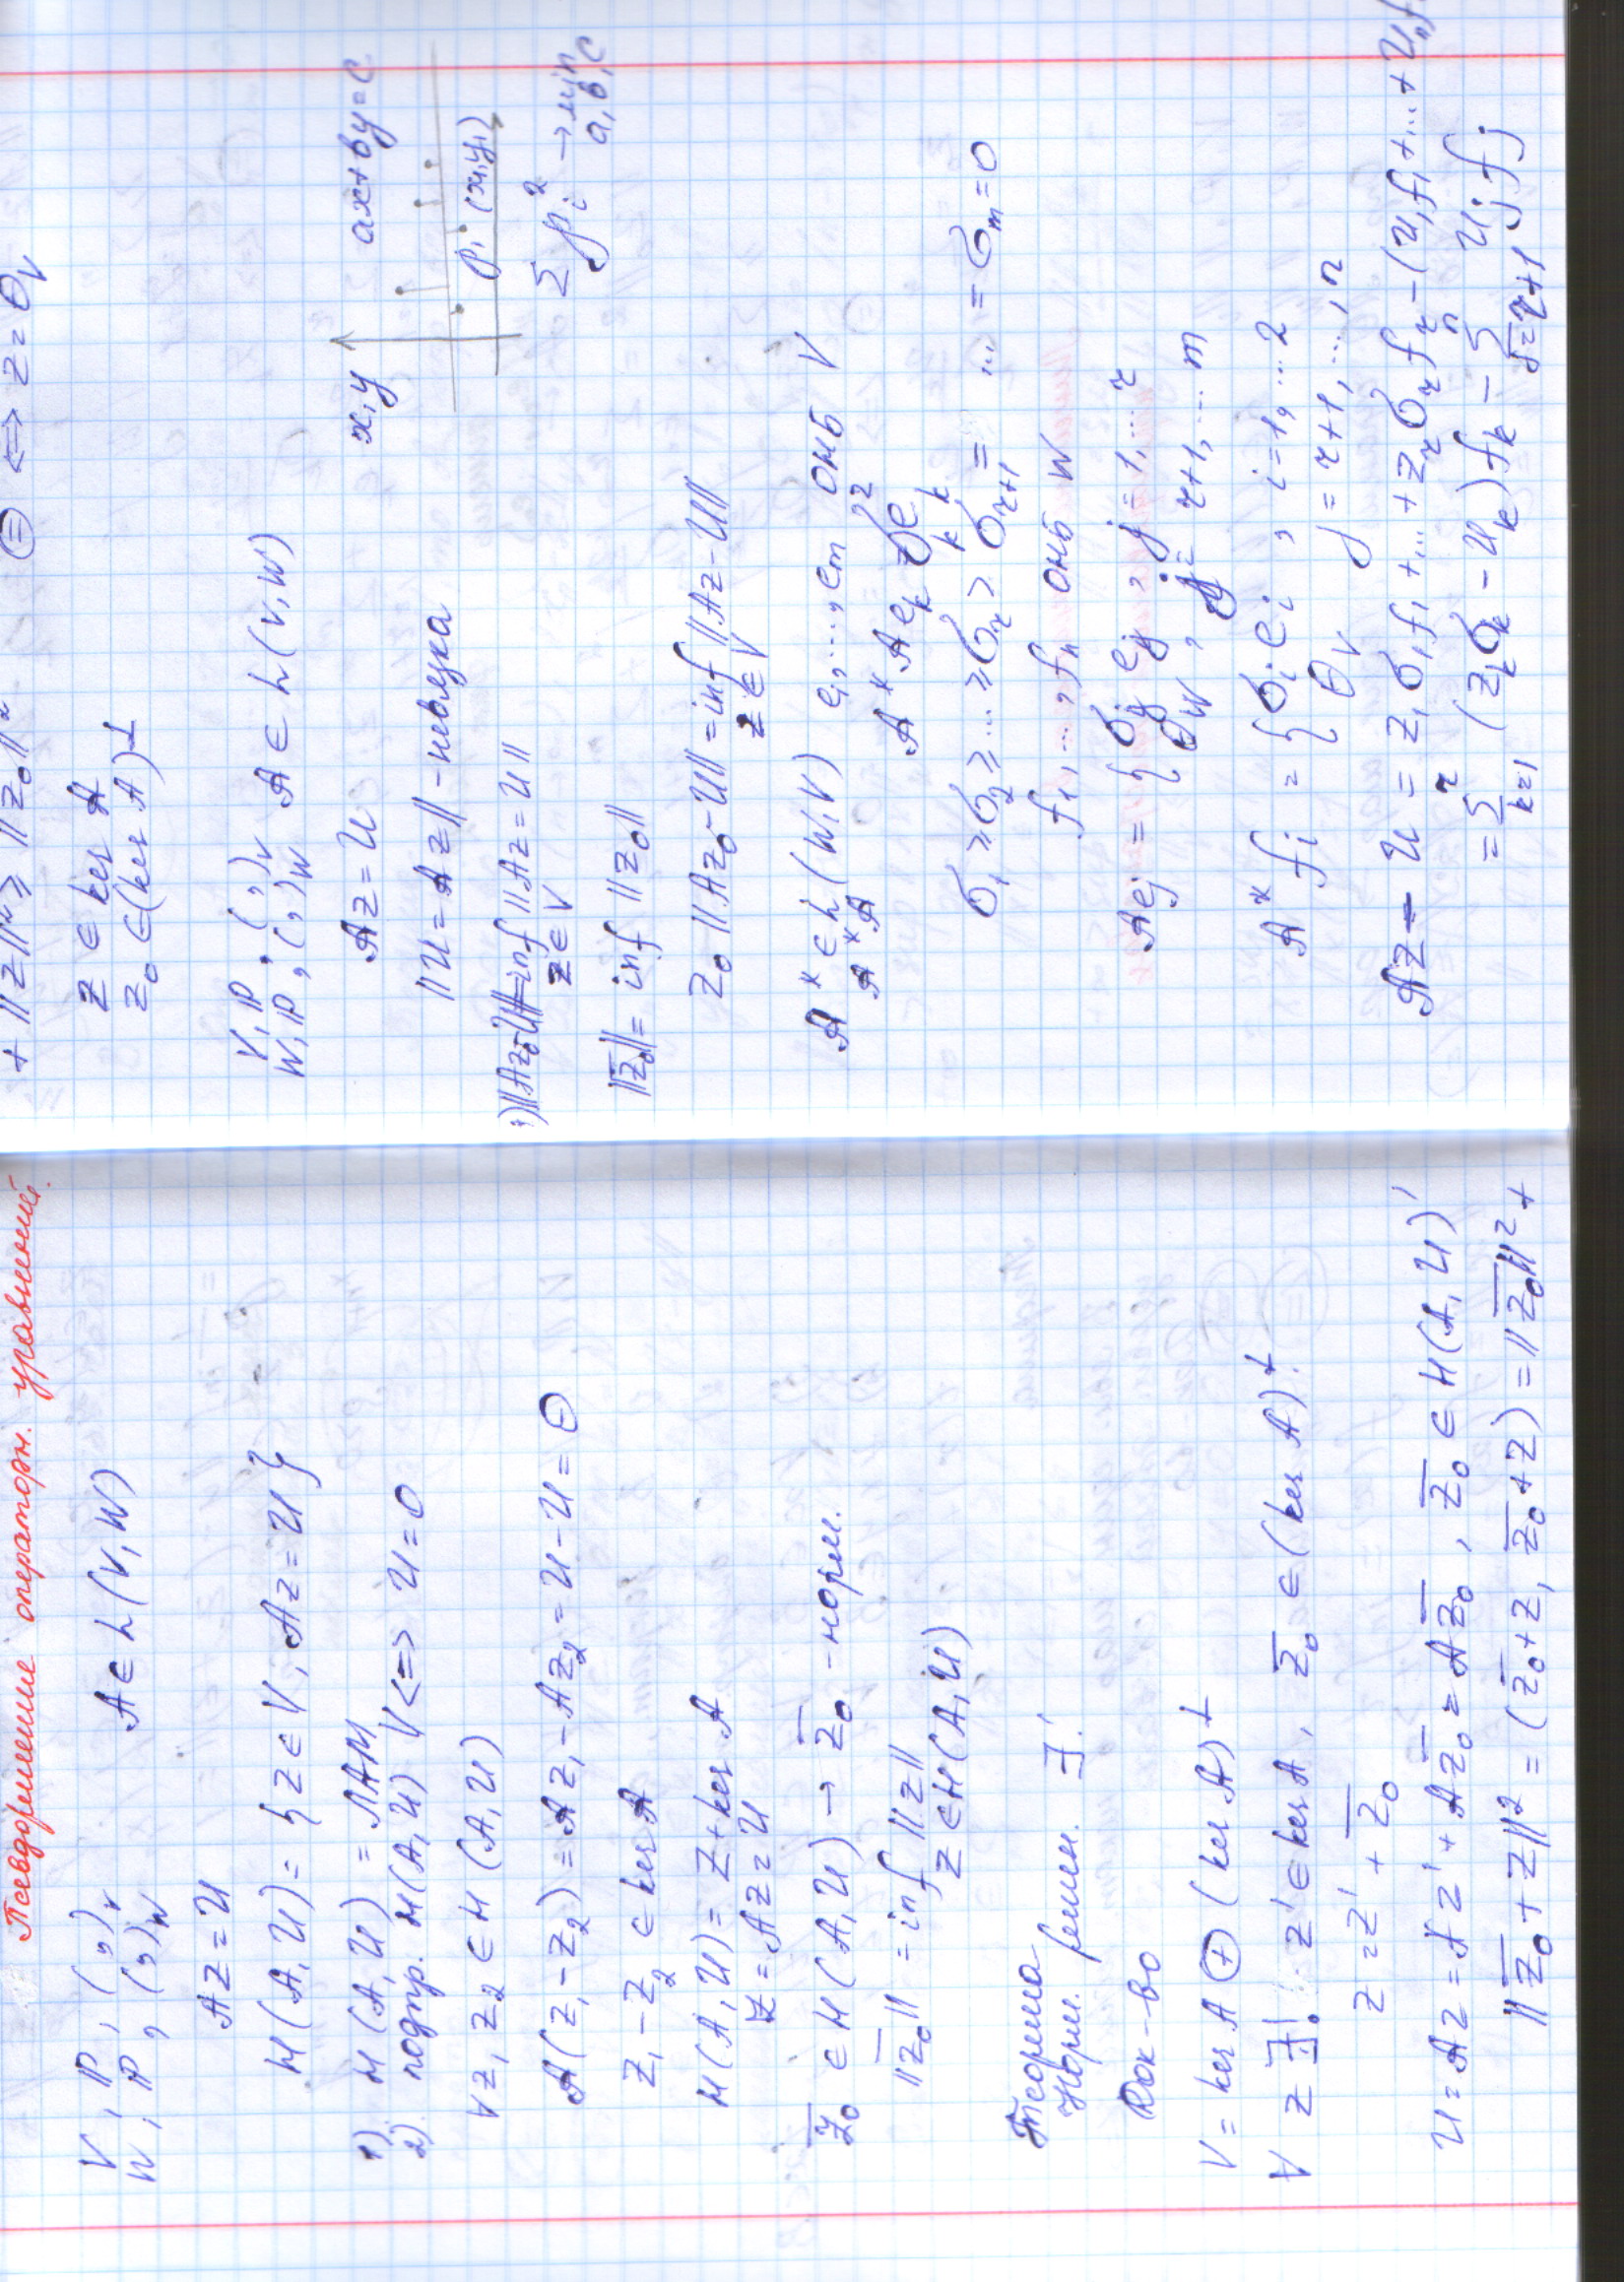 Псевдорешение операторн. уравнений.
V, P, ( , )_V
W, P, ( , )_W    A ∈ L(V, W)
Az = u
M(A, u) = { z ∈ V, Az = u }
1) M(A, u) = ЛАМ
2) подпр. M(A, u) V <=> u = 0
∀ z₁ z₂ ∈ M(A, u)
A(z₁ - z₂) = Az₁ - Az₂ = u - u = θ
z₁ - z₂ ∈ ker A
M(A, u) = z + ker A
∀z = Az = u
z̄₀ ∈ M(A, u) → z̄₀ - норм.
||z̄₀|| = inf ||z||
z ∈ M(A, u)
Теорема
Норм. решен. ∃!
Док-во
V = ker A ⊕ (ker A)⊥
∀ z ∃! z' ∈ ker A, z̄₀ ∈ (ker A)⊥.
z = z' + z̄₀
u = Az = Az' + Az̄₀ = Az̄₀, z̄₀ ∈ M(A, u)'
||z̄₀ + z||² = (z̄₀ + z, z̄₀ + z) = ||z̄₀||² +
+ ||z||² ≥ ||z₀||² (=) <=> z = θ_V
z ∈ ker A
z₀ ∈ (ker A)⊥
V, P, ( , )_V
W, P, ( , )_W    A ∈ L(V, W)
Az = u
x, y    ax + by = c
ρ₁ (x₁ y₁)
Σ ρᵢ² → min
a, b, c
||u = Az|| - невязка
||Az₀ - u|| = inf ||Az = u||
z ∈ V
||z̄₀|| = inf ||z₀||
z₀ ||Az₀ - u|| = inf ||Az - u||
z ∈ V
A* ∈ L(W, V)    e₁, ..., eₘ ОНБ V
A*A    A*A eₖ σₖ² eₖ
σ₁ ≥ σ₂ ≥ ... ≥ σᵣ > σᵣ₊₁ = ... = σₘ = 0
f₁, ..., fₙ ОНБ W
Aeⱼ = { σⱼ eⱼ, j = 1, ... r
θ_W, j = r+1, ... m
A* fᵢ = { σᵢ eᵢ, i = 1, ... r
θ_V    j = r+1, ..., n
Az - u = z₁σ₁f₁ + ... + zᵣσᵣfᵣ - (u₁f₁ + ... + uₙfₙ
= Σₖ₌₁ʳ (zₖσₖ - uₖ)fₖ - Σⱼ₌ᵣ₊₁ⁿ uⱼfⱼ